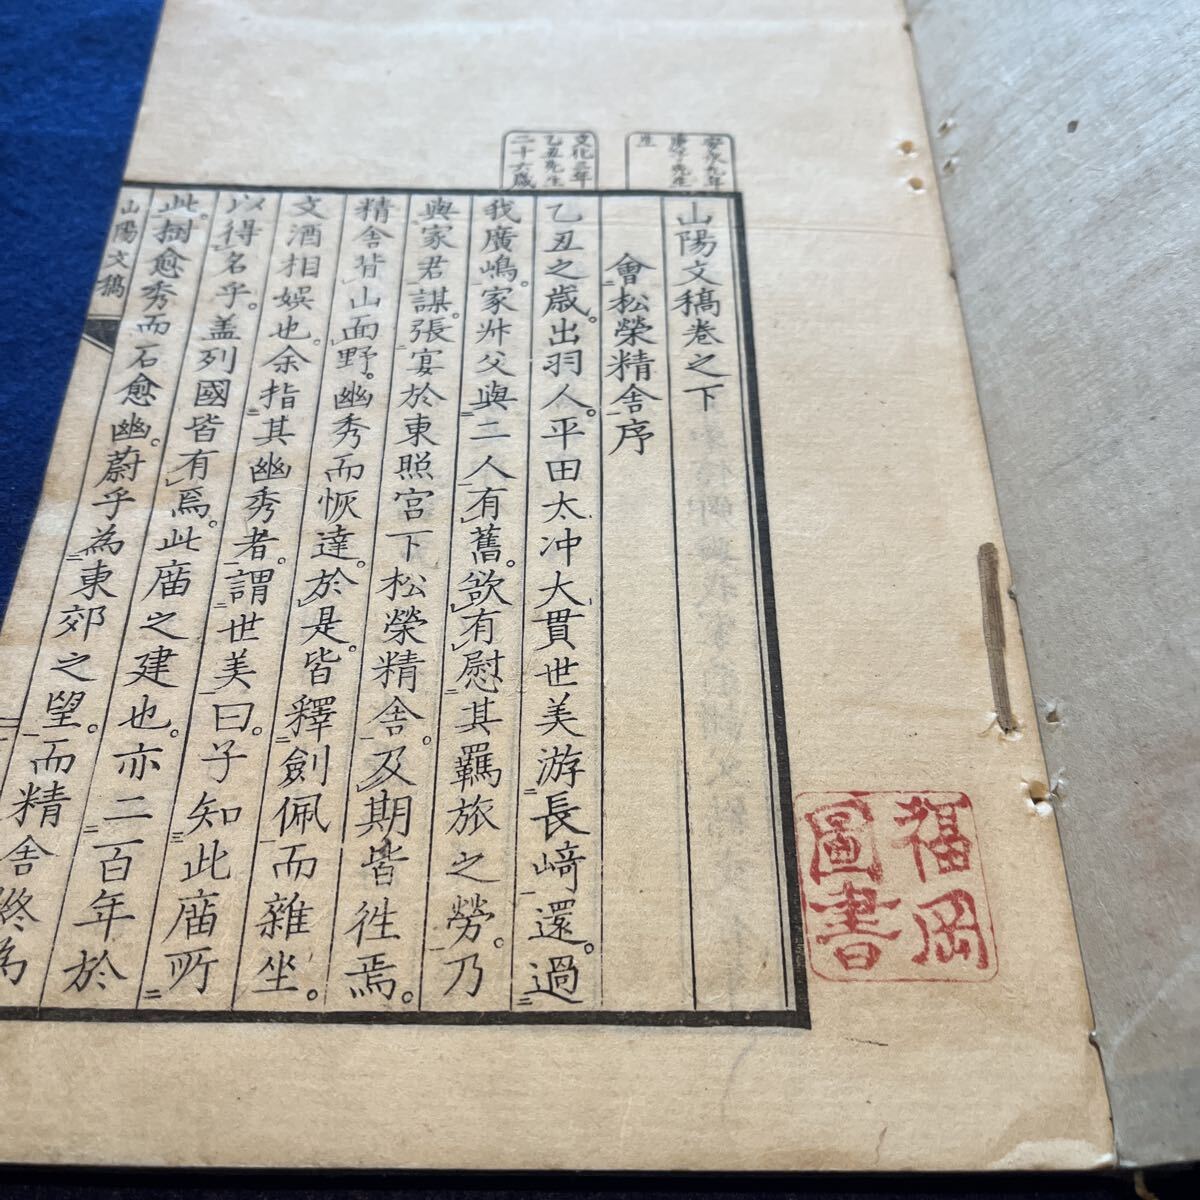 安永九年
庚子先生
生
文化二年
乙丑先生
二十六歳
山陽文稿卷之下
會松榮精舍序
乙丑之歳。出羽人。平田太冲大貫世美游長﨑還。過
我廣嶋。家舛父與二人有舊。欲有慰其羈旅之勞。乃
與家君謀。張宴於東照宮下松榮精舍。及期皆徃焉。
精舍背山面野。幽秀而恢達。於是。皆釋劍佩而雜坐。
文酒相娯也。余指其幽秀者。謂世美曰。子知此庿所
以得名乎。盖列國皆有焉。此庿之建也。亦二百年於
此。樹愈秀而石愈幽。蔚乎為東郊之望。而精舍終為
山陽文稿
福岡
圖書